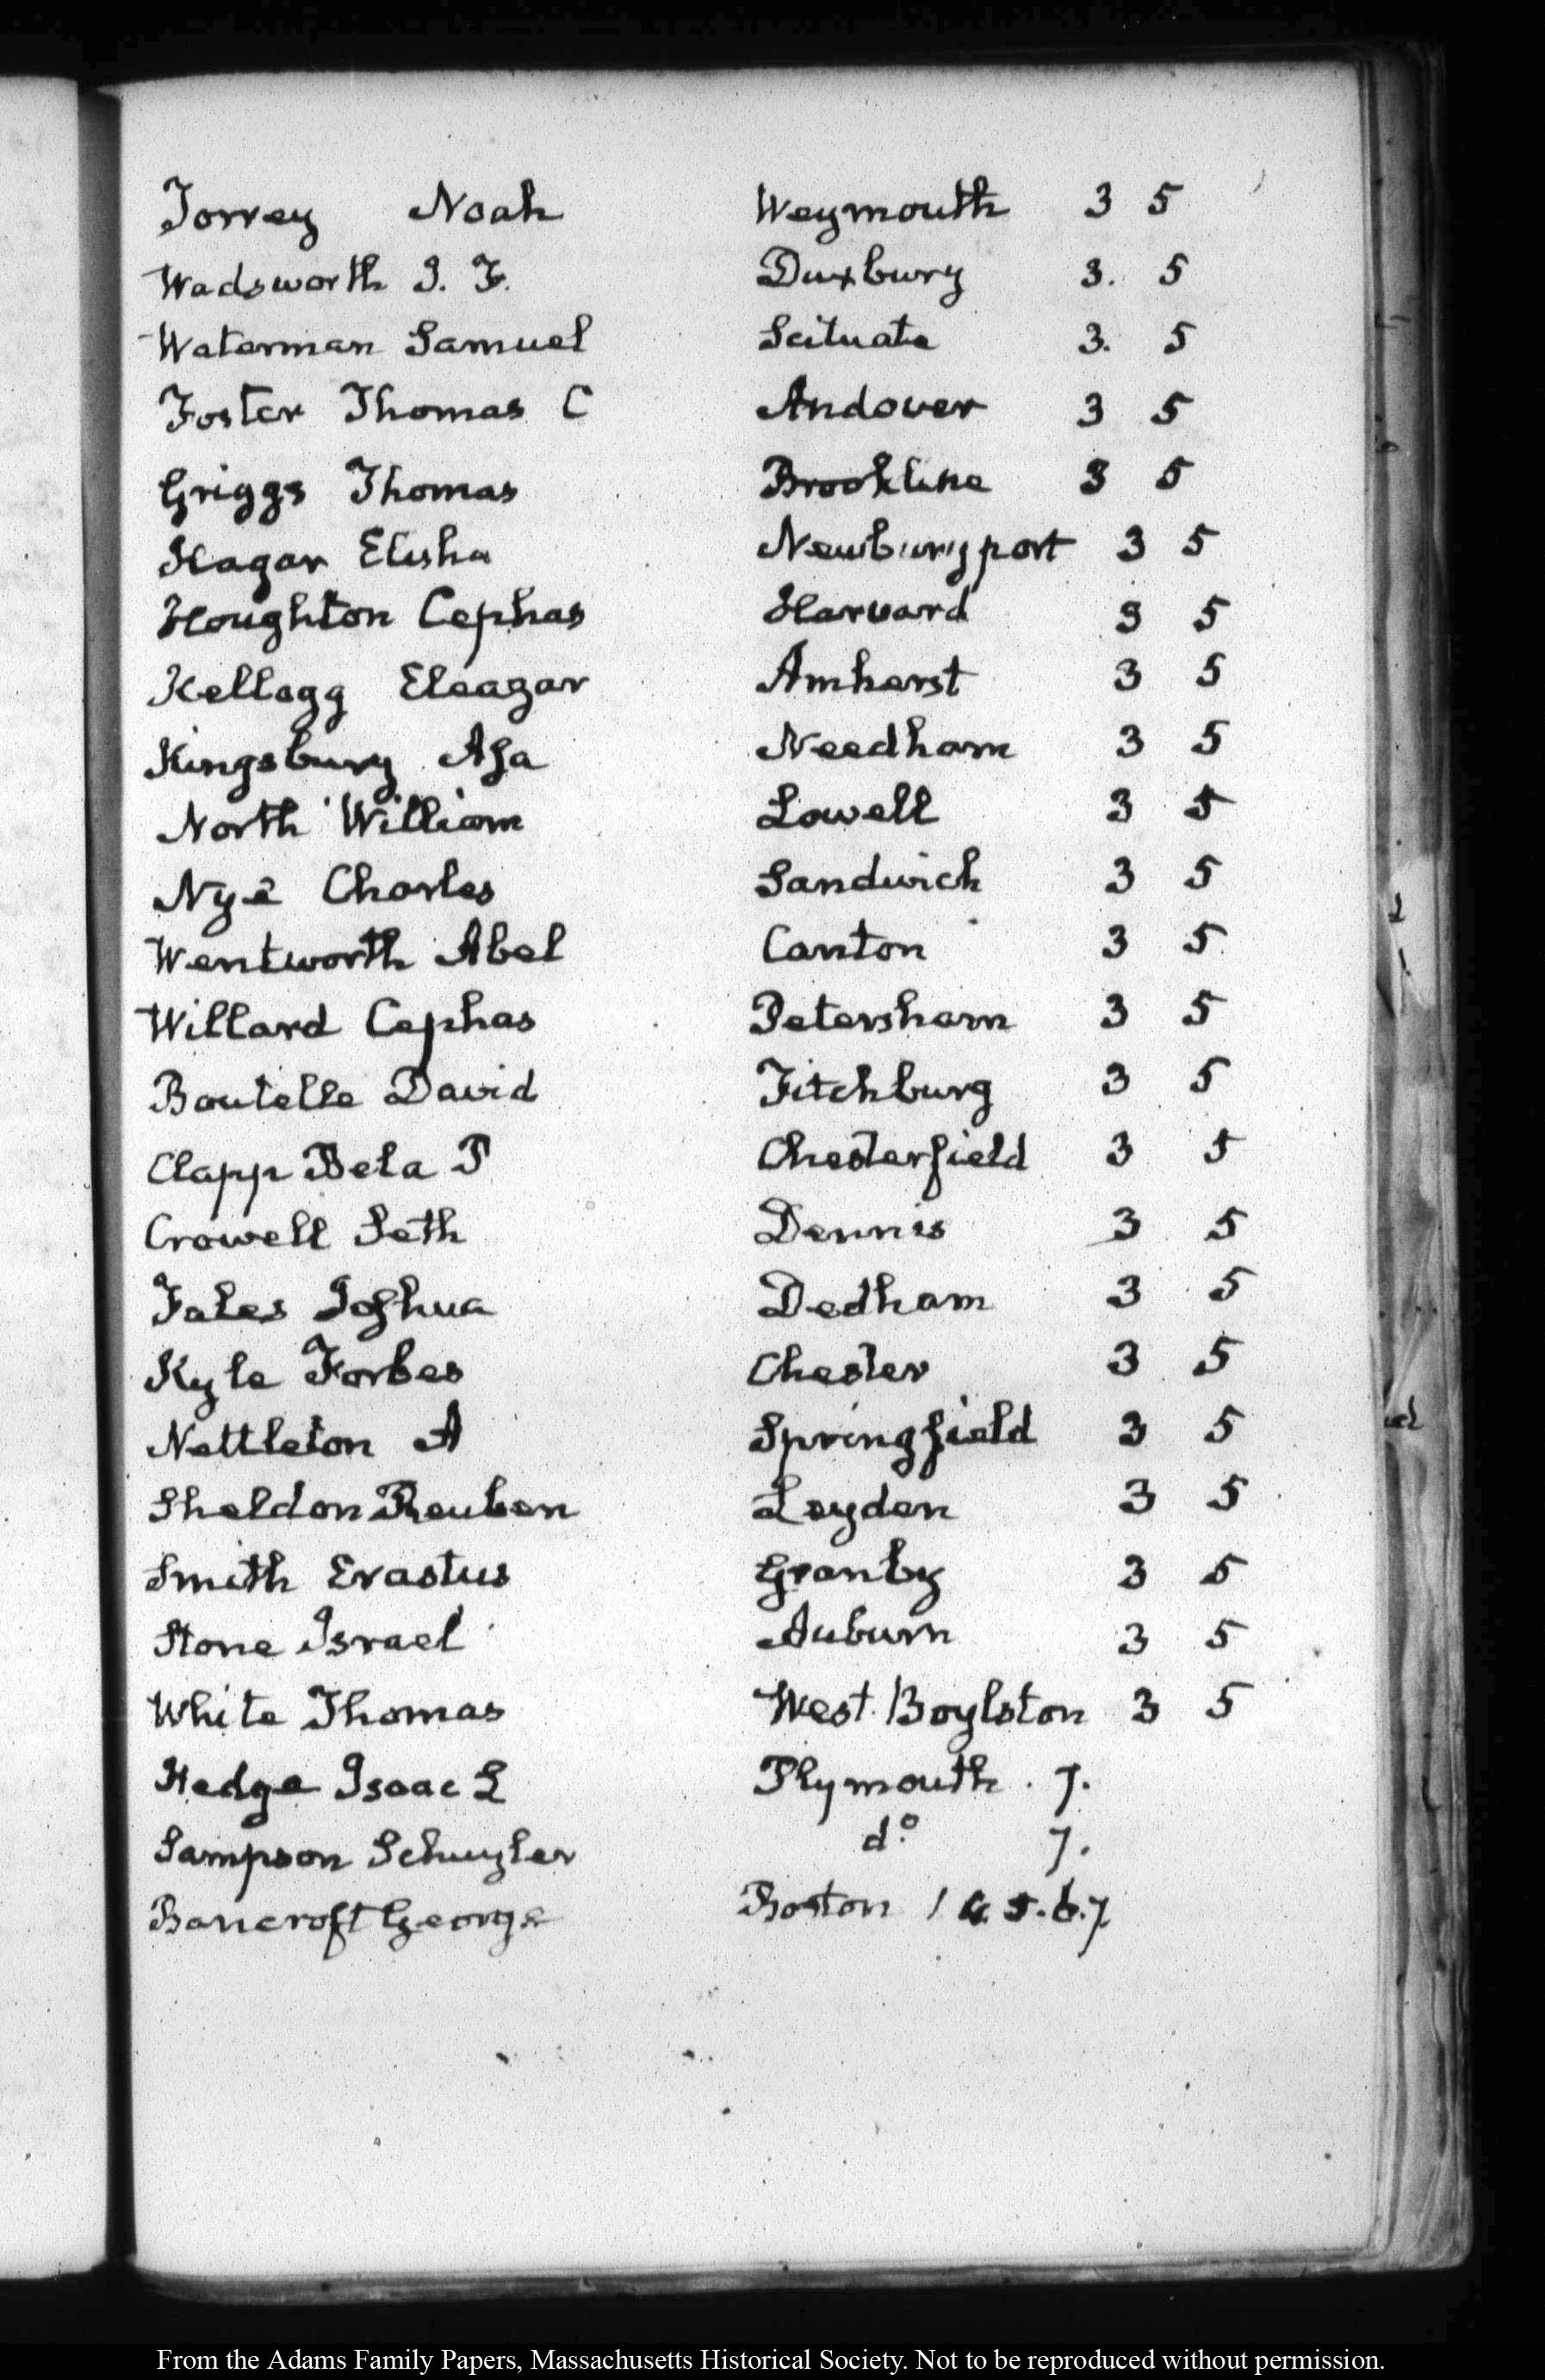 Torrey Noah Weymouth 3 5
Wadsworth J. F. Duxbury 3. 5
Waterman Samuel Scituate 3. 5
Foster Thomas C Andover 3 5
Griggs Thomas Brookline 3 5
Hagar Elisha Newburyport 3 5
Houghton Cephas Harvard 3 5
Kellogg Eleazar Amherst 3 5
Kingsbury Asa Needham 3 5
North William Lowell 3 5
Nye Charles Sandwich 3 5
Wentworth Abel Canton 3 5
Willard Cephas Petersham 3 5
Boutelle David Fitchburg 3 5
Clapp Bela P Chesterfield 3 5
Crowell Seth Dennis 3 5
Fales Joshua Dedham 3 5
Kyle Forbes Chester 3 5
Nettleton A Springfield 3 5
Sheldon Reuben Leyden 3 5
Smith Erastus Granby 3 5
Stone Israel Auburn 3 5
White Thomas West Boylston 3 5
Hedge Isaac L Plymouth . 7.
Sampson Schuyler do. 7.
Bancroft George Boston 1 4. 5. 6. 7
From the Adams Family Papers, Massachusetts Historical Society. Not to be reproduced without permission.